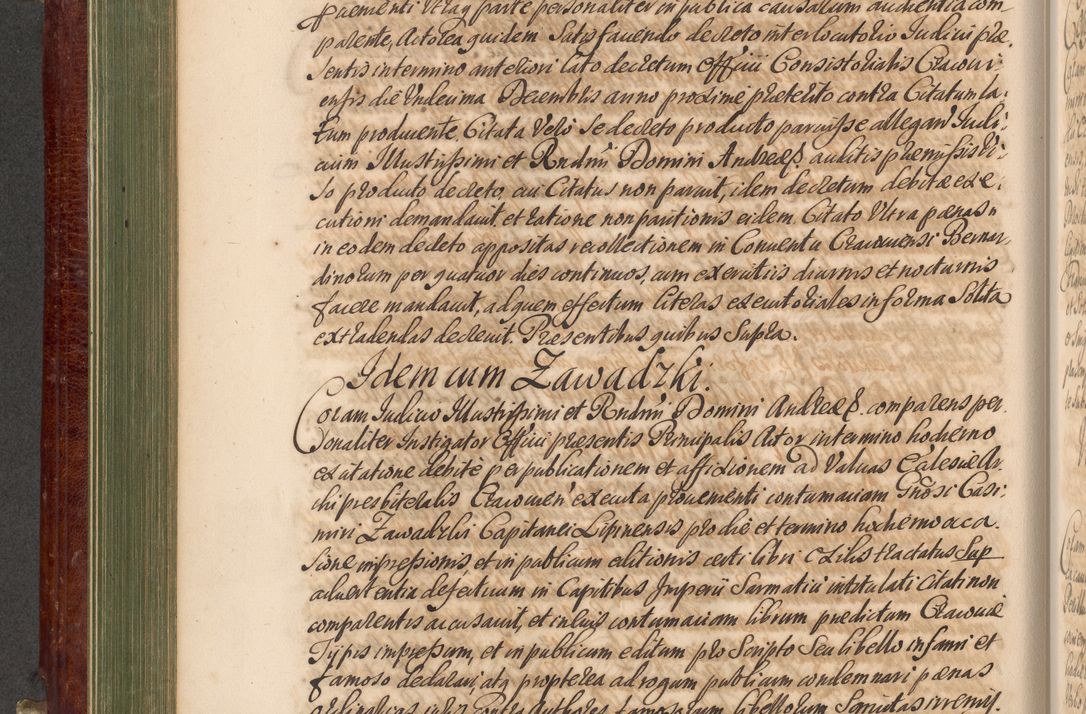 parente, Actorea quidem Satisfaciendo decreto interlocutorio Iudicii præ:
sentis in termino anteriori lato decretum Officii Consistorialis Cracovi:
ensis die Undecima Decembris anno proxime præterito contra Citatum la:
tum producente Citata Vero se decreto producto paruisse allegan Iudi:
cium Illustrissimi et Rndmi Domini Andreæ auditis præmissis Vi:
so producto decreto, cui Citatus non paruit, idem decretum debitæ exe:
cutioni demandavit, et ratione non paritionis eidem Citato Ultra pænas
in eodem decreto appositas recollectionem in Conventu Cracoviensi Bernar:
dinorum per quatuor dies continuos, cum exercitiis diurnis et nocturnis
facere mandavit, ad quem effectum literas executoriales in forma Solita
extradendas decrevit. Præsentibus quibus Supra.
Idem cum Zawadzki.
Coram Iudicio Illustrissimi et Rndmi Domini Andreæ comparens per
sonaliter Instigator Officii præsentis Principalis Actor in termino hodierno
ex citatione debite per publicationem et affixionem ad Valvas Ecclesiæ Ar:
chipresbiteralis Cracovien executa provenienti contumaciam Gnosi Casi:
miri Zawadzki Capitanei Lipinensis pro die et termino hodierno occa
sione impressionis, et in publicum editionis certi libri
advertentia defectuum in Capitibus Imperii Sarmatici intitulati Citati non
comparentis accusavit, et in eius contumaciam librum predictum Cracoviæ
Typis impressum, et in publicum editum pro Scripto Seu libello infami et
famoso declarari, atq propterea ad rogum publicum condemnari pænas